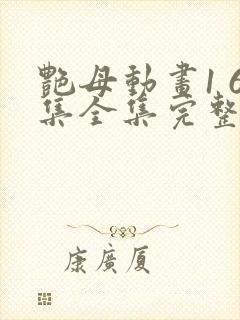 艷母動畫1 6
集全集完整
康廣厦